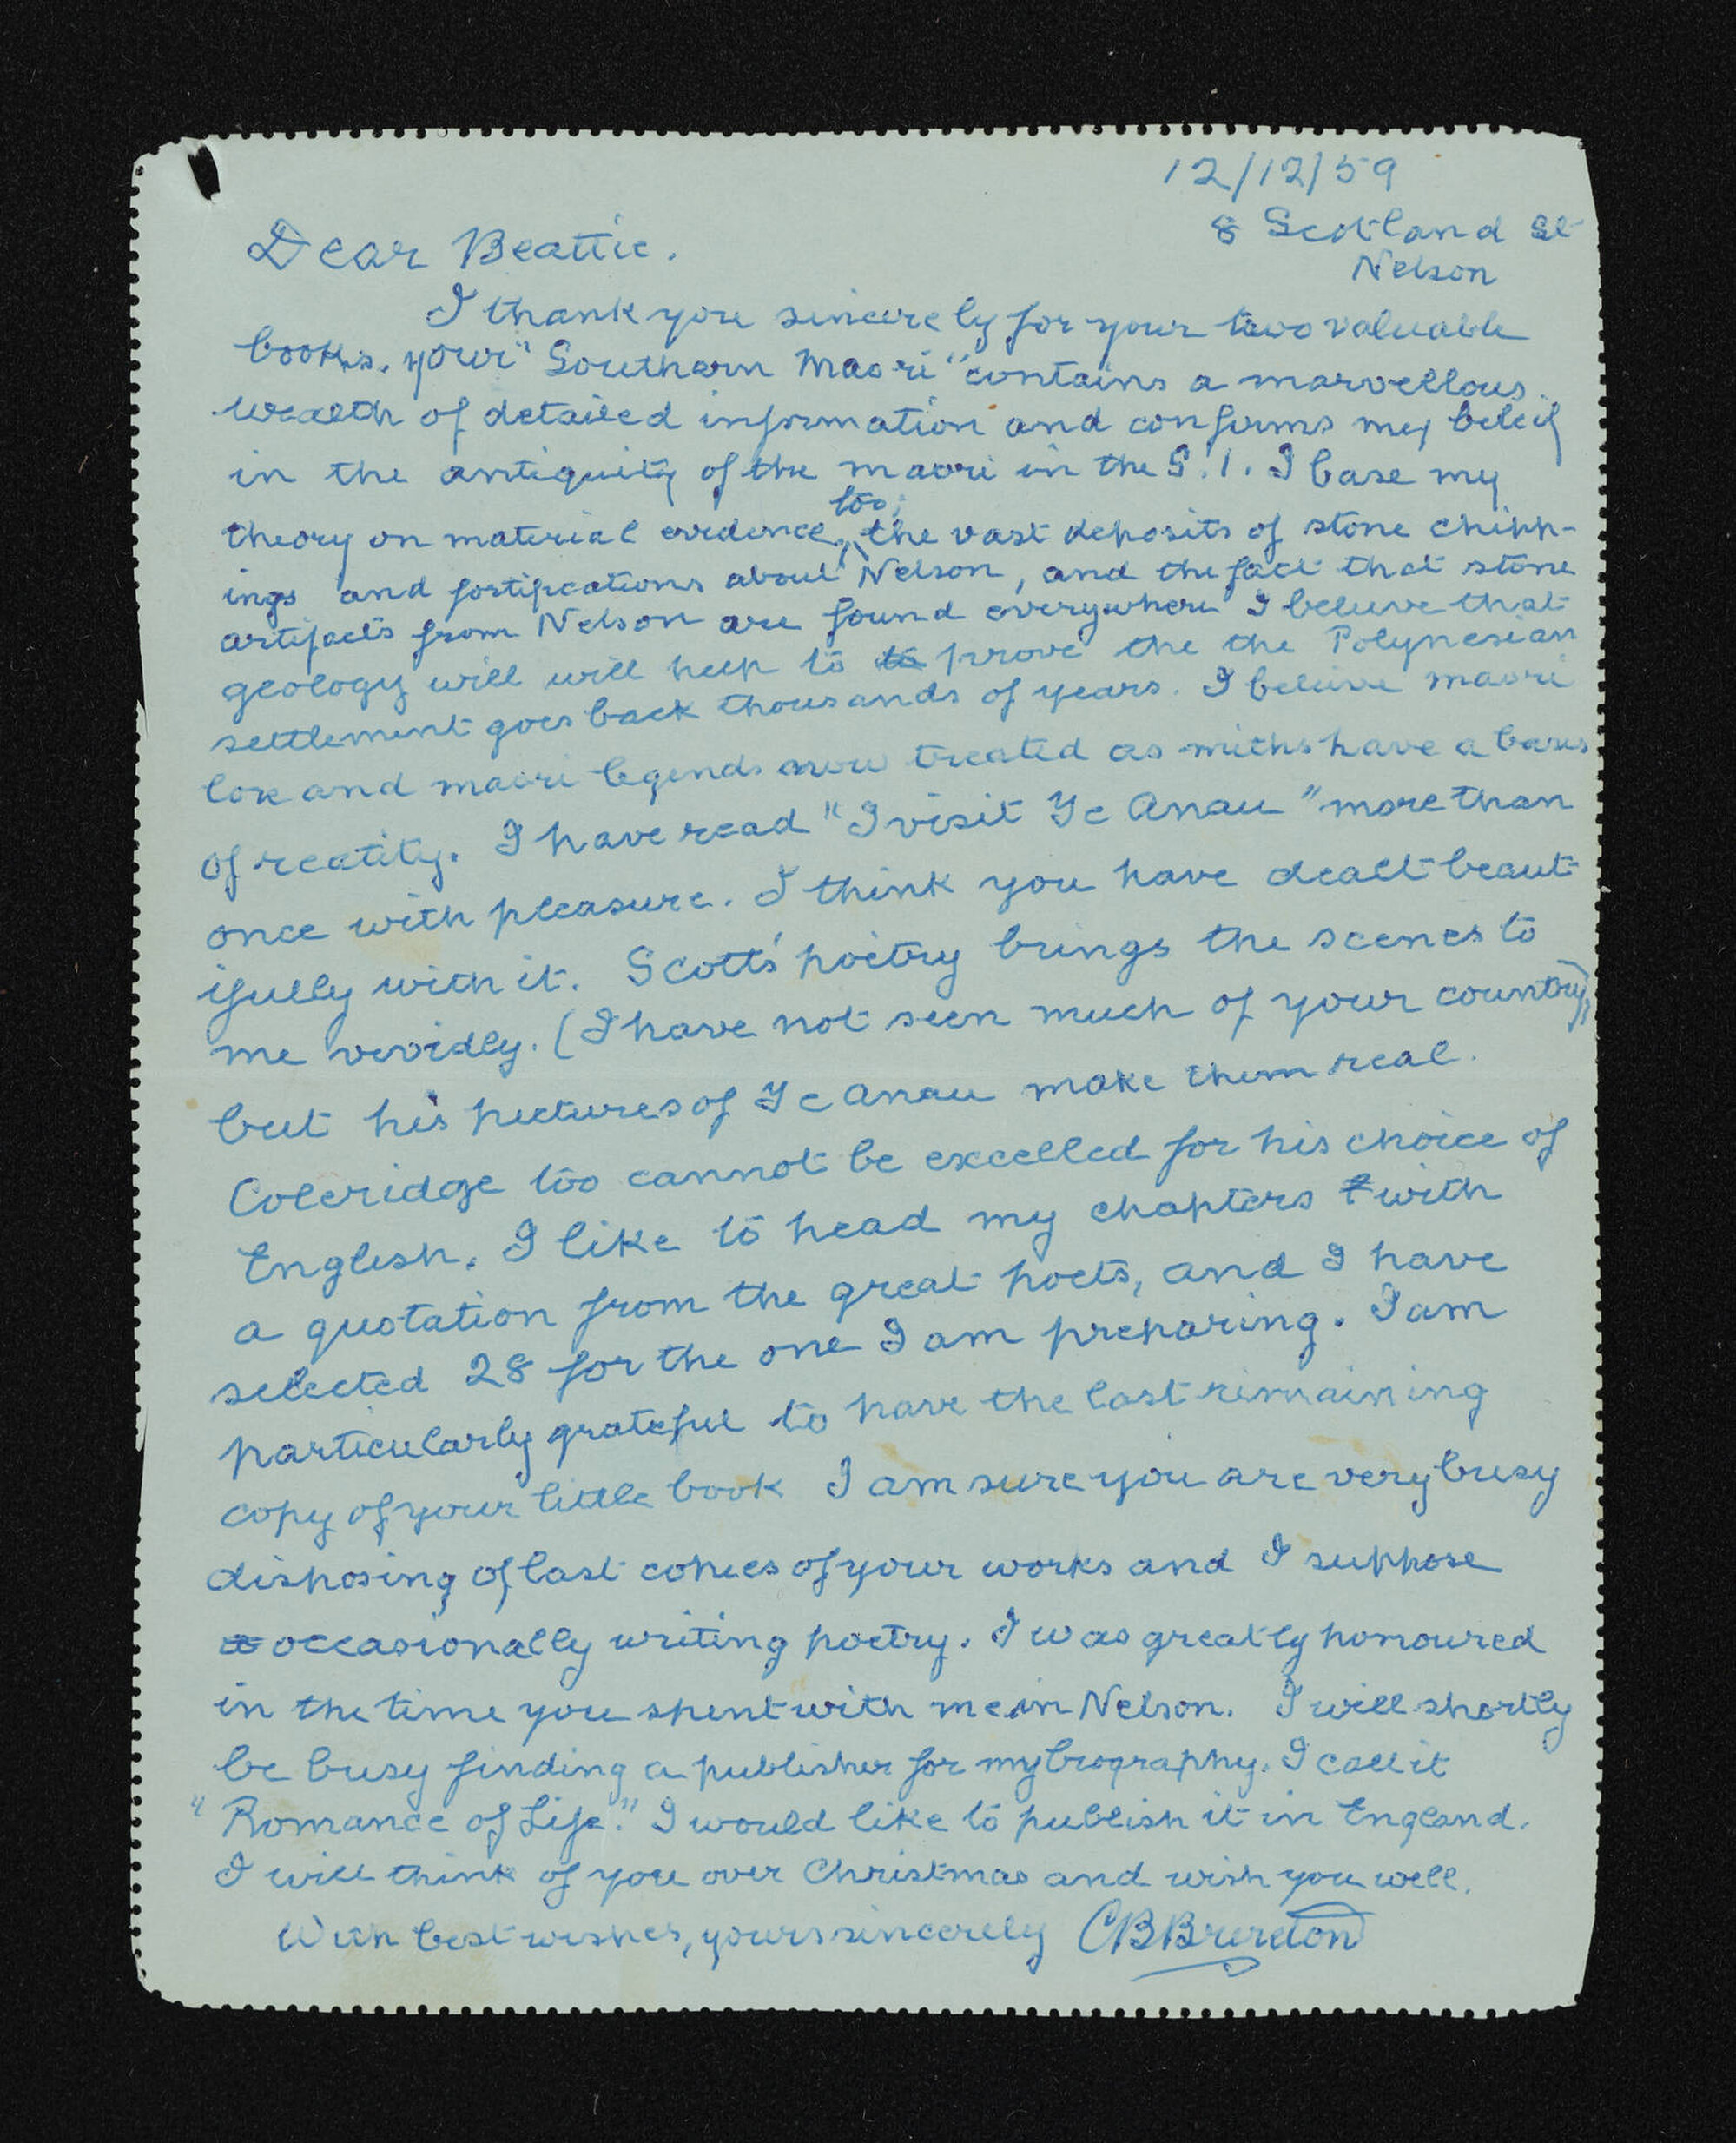 12/12/59
8 Scotland St
Nelson
Dear Beattie.
I thank you sincerely for your two valuable
books. your "Southern Maori" contains a marvellous
wealth of detailed information and confirms my beleif
in the antiquity of the maori in the S.I. I base my
too;
theory on material evidence, the vast deposits of stone chipp-
ings and fortifications about Nelson, and the fact that stone
artifacts from Nelson are found everywhere I beleive that
geology will will help to to prove the the Polynesian
settlement goes back thousands of years. I beleive maori
lore and maori legends now treated as miths have a basis
of reality. I have read "I visit Te Anau" more than
once with pleasure. I think you have dealt beaut
ifully with it. Scotts' poetry brings the scenes to
me vividly. (I have not seen much of your country),
but his pictures of Te Anau make them real.
Coleridge too cannot be excelled for his choice of
English. I like to head my chapters with
a quotation from the great poets, and I have
selected 28 for the one I am preparing. I am
particularly grateful to have the last remaining
copy of your little book I am sure you are very busy
disposing of last copies of your works and I suppose
occasionally writing poetry. I was greatly honoured
in the time you spent with me in Nelson. I will shortly
be busy finding a publisher for my biography. I call it
"Romance of Life." I would like to publish it in England.
I will think of you over Christmas and wish you well.
With best wishes, yours sincerely CBBrereton